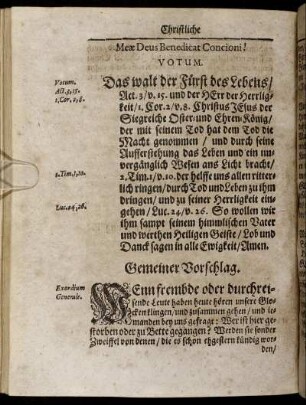 Christliche
Mex Deus Benedicat Concioni!
VOTUM.
Votum.
Act. 3, 15.
1, Cor. 2, 8.
Das walt der Fürst des Lebens/
Act. 3/v. 15. und der HErr der Herrlig-
keit/1. Cor. 2/v. 8. Christus JEsus der
Siegreiche Oster- und Ehren-König/
der mit seinem Tod hat dem Tod die
Macht genommen/ und durch seine
Aufferstehung das Leben und ein un-
vergänglich Wesen ans Licht bracht/
2. Tim. 1, 10.
2. Tim. 1/v. 10. der helffe uns allen ritter-
lich ringen/durch Tod und Leben zu ihm
dringen/ und zu seiner Herrligkeit ein-
Luc. 24, 26.
gehen/ Luc. 24/v. 26. So wollen wir
ihm sampt seinem himmlischen Vater
und werthen Heiligen Geiste/ Lob und
Danck sagen in alle Ewigkeit/Amen.
Gemeiner Vorschlag.
Exordium
Generale.
WEnn frembde oder durchrei-
sende Leute haben heute hören unsere Glo-
cken klingen/und zusammen gehen/ und je-
manden bey uns gefragt: Wer ist hier ge-
storben oder zu Bette gegangen? Werden sie sonder
Zweiffel von denen/ die es schon ehgestern kündig wor-
den/